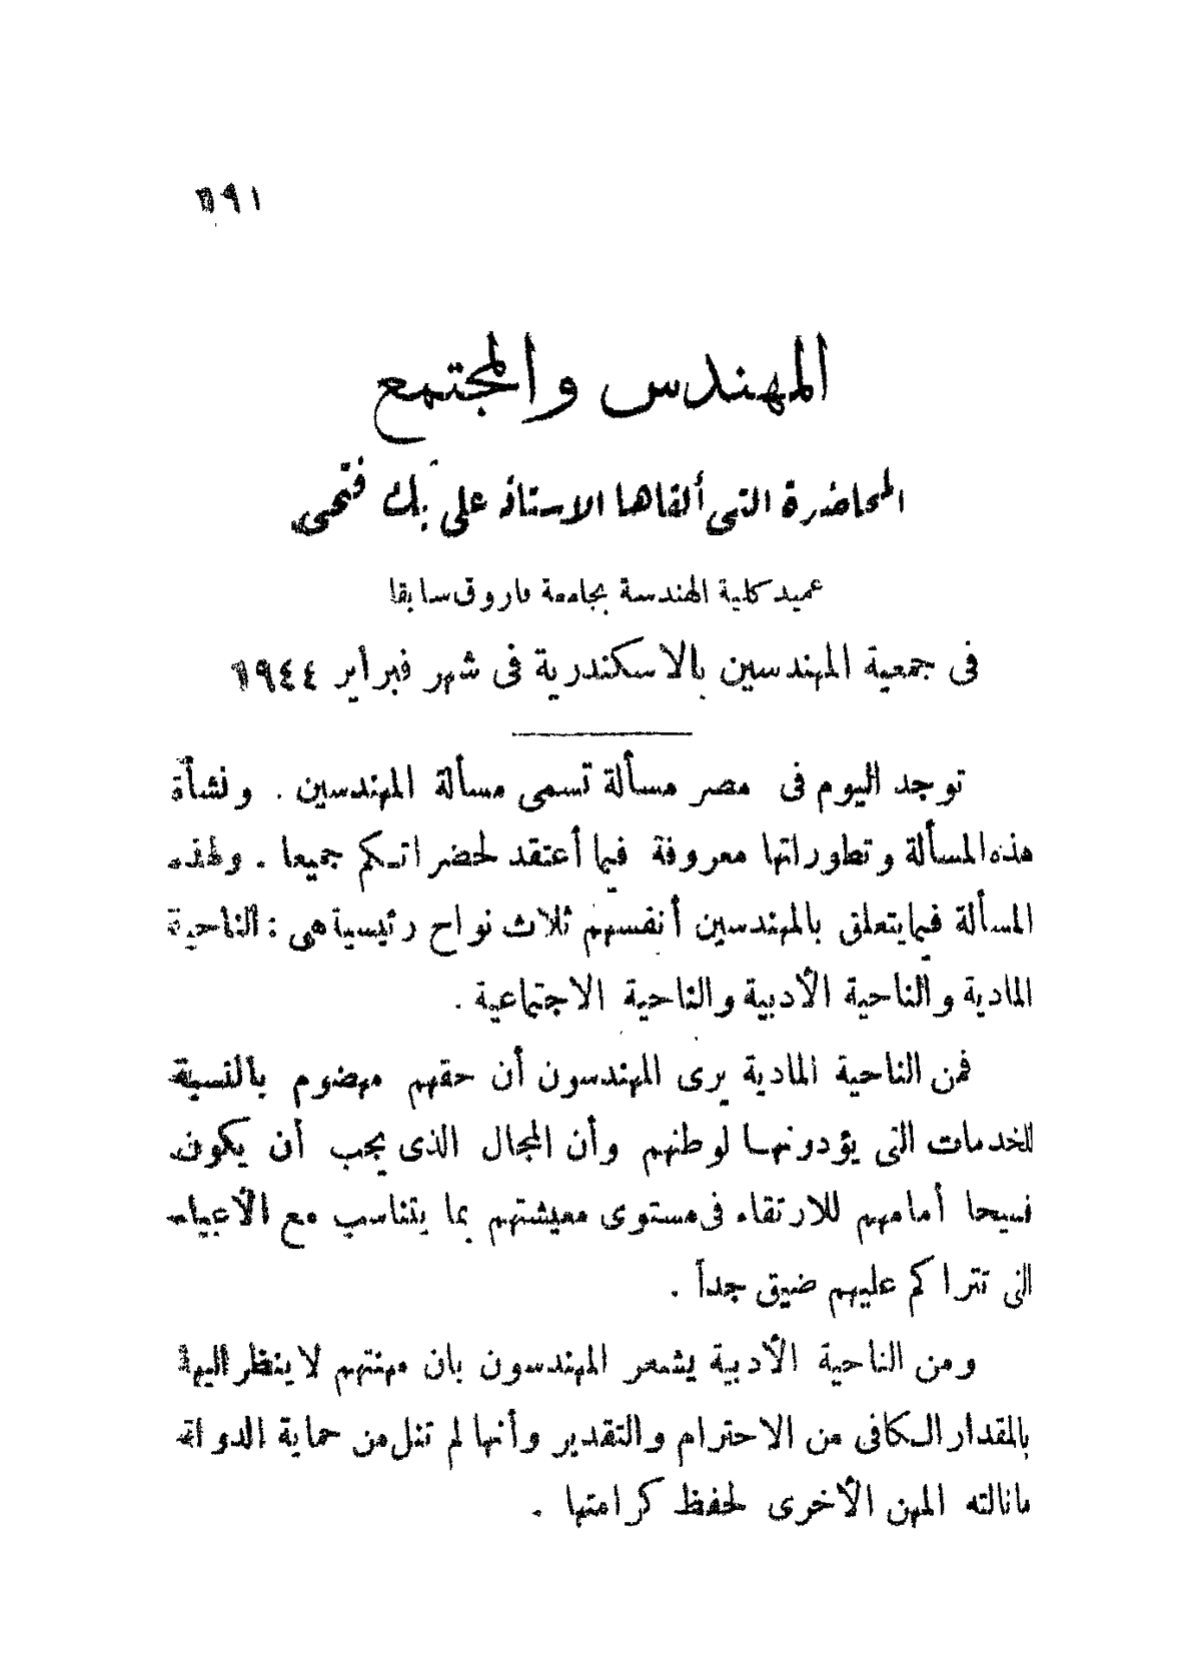 المهندس والمجتمع
المحاضرة التى ألقاها الاستاذ على بك فتحى
عميد كلية الهندسة بجامعة فاروق سابقا
فى جمعية المهندسين بالاسكندرية فى شهر فبراير ١٩٤٤
توجد اليوم فى مصر مسألة تسمى مسألة المهندسين . ونشأة
هذه المسألة وتطوراتها معروفة فيما أعتقد لحضراتكم جميعا . ولهذه
المسألة فيما يتعلق بالمهندسين أنفسهم ثلاث نواح رئيسية هى : الناحية
المادية والناحية الأدبية والناحية الاجتماعية .
فمن الناحية المادية يرى المهندسون أن حقهم مهضوم بالنسبة
للخدمات التى يؤدونها لوطنهم وأن المجال الذى يجب أن يكون
فسيحا أمامهم للارتقاء فى مستوى معيشتهم بما يتناسب مع الأعباء
التى تتراكم عليهم ضيق جداً .
ومن الناحية الأدبية يشعر المهندسون بان مهنتهم لا ينظر اليها
بالمقدار الكافى من الاحترام والتقدير وأنها لم تنل من حماية الدولة
ما نالته المهن الأخرى لحفظ كرامتها .